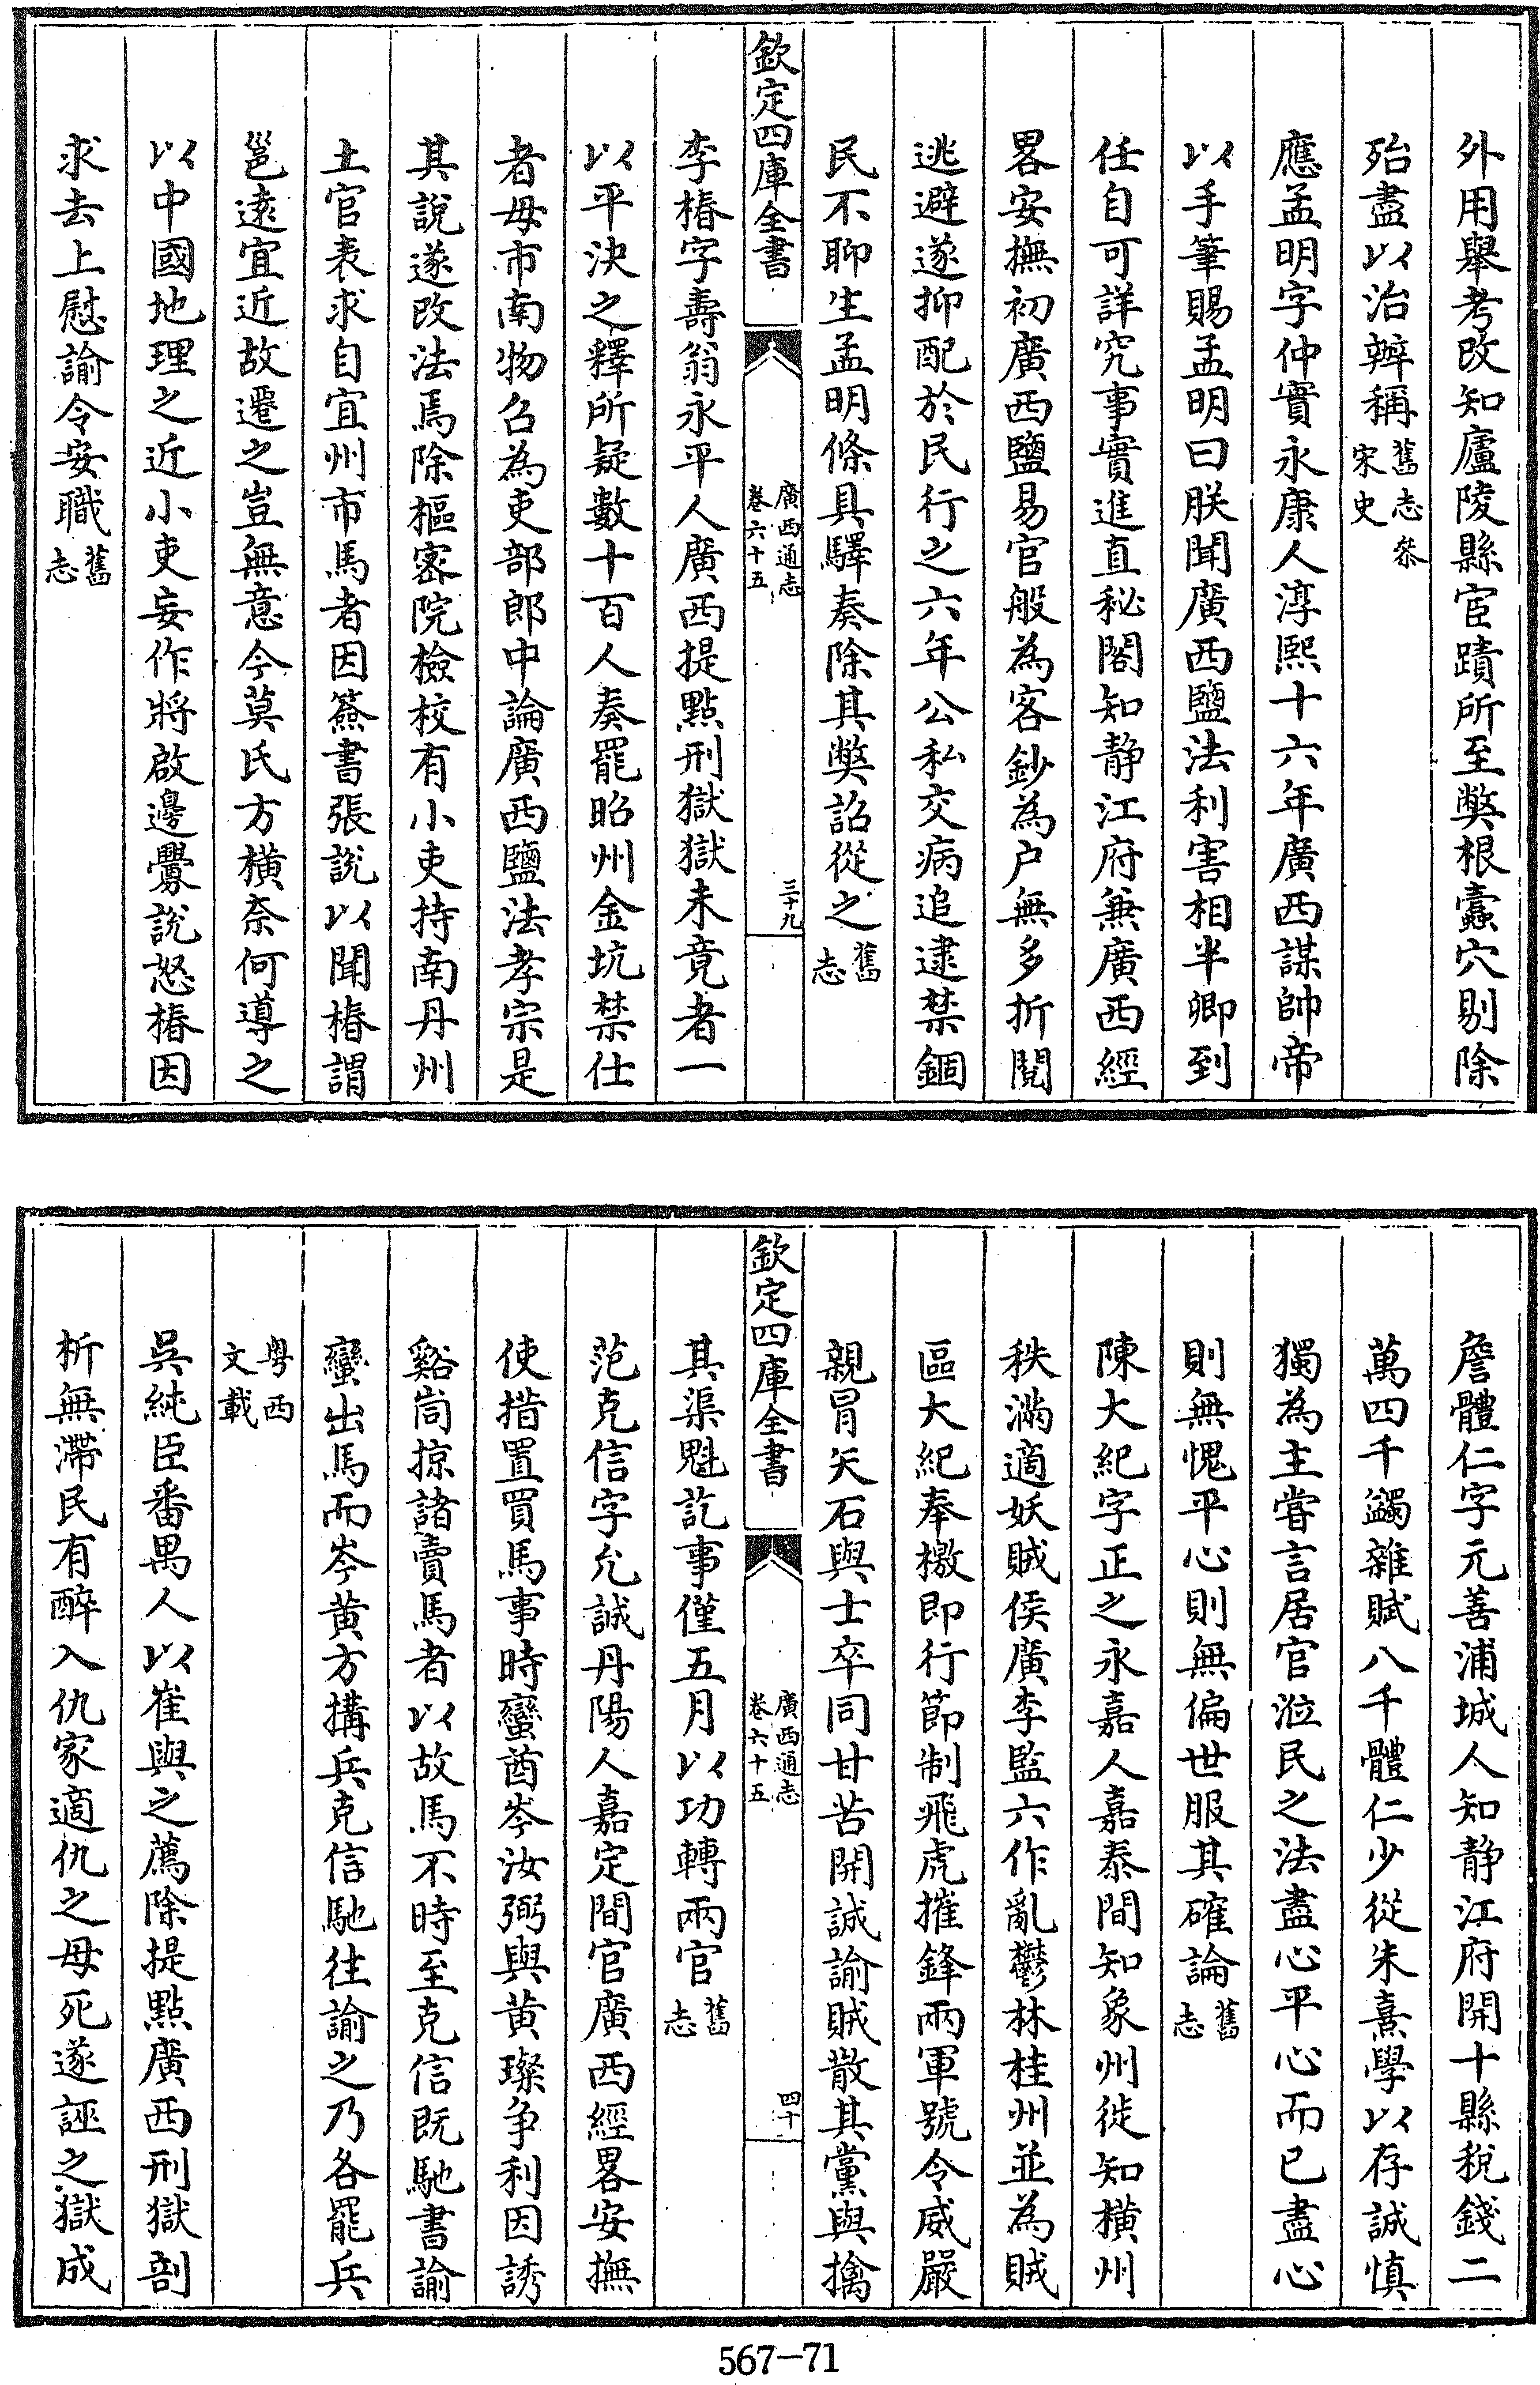 外用舉考改知廬陵縣宦蹟所至弊根蠧穴剔除
殆盡以治辦稱舊志叅宋史
應孟明字仲實永康人淳熙十六年廣西謀帥帝
以手筆賜孟明曰朕聞廣西鹽法利害相半卿到
任自可詳究事實進直秘閣知静江府兼廣西經
畧安撫初廣西鹽易官般為客鈔為户無多折閱
逃避遂抑配於民行之六年公私交病追逮禁錮
民不聊生孟明條具驛奏除其弊詔從之舊志
欽定四庫全書
廣西通志
卷六十五
三十九
李椿字壽翁永平人廣西提點刑獄獄未竟者一
以平決之釋所疑數十百人奏罷昭州金坑禁仕
者毋市南物召為吏部郎中論廣西鹽法孝宗是
其說遂改法焉除樞密院檢校有小吏持南丹州
土官表求自宜州市馬者因簽書張說以聞椿謂
邕遠宜近故遷之豈無意今莫氏方橫奈何導之
以中國地理之近小吏妄作將啟邊釁說怒椿因
求去上慰諭令安職舊志
詹體仁字元善浦城人知静江府開十縣稅錢二
萬四千蠲雜賦八千體仁少從朱熹學以存誠慎
獨為主嘗言居官涖民之法盡心平心而已盡心
則無愧平心則無偏世服其確論舊志
陳大紀字正之永嘉人嘉泰間知象州徙知橫州
秩滿適妖賊侯廣李監六作亂鬱林桂州並為賊
區大紀奉檄即行節制飛虎摧鋒兩軍號令威嚴
親冒矢石與士卒同甘苦開誠諭賊散其黨與擒
欽定四庫全書
廣西通志
卷六十五
四十
其渠魁訖事僅五月以功轉兩官舊志
范克信字允誠丹陽人嘉定間官廣西經畧安撫
使措置買馬事時蠻酋岑汝弼與黄璨争利因誘
谿峝掠諸賣馬者以故馬不時至克信既馳書諭
蠻出馬而岑黄方搆兵克信馳往諭之乃各罷兵
粤西文載
吳純臣番禺人以崔與之薦除提點廣西刑獄剖
析無滯民有醉入仇家適仇之母死遂誣之獄成
567-71